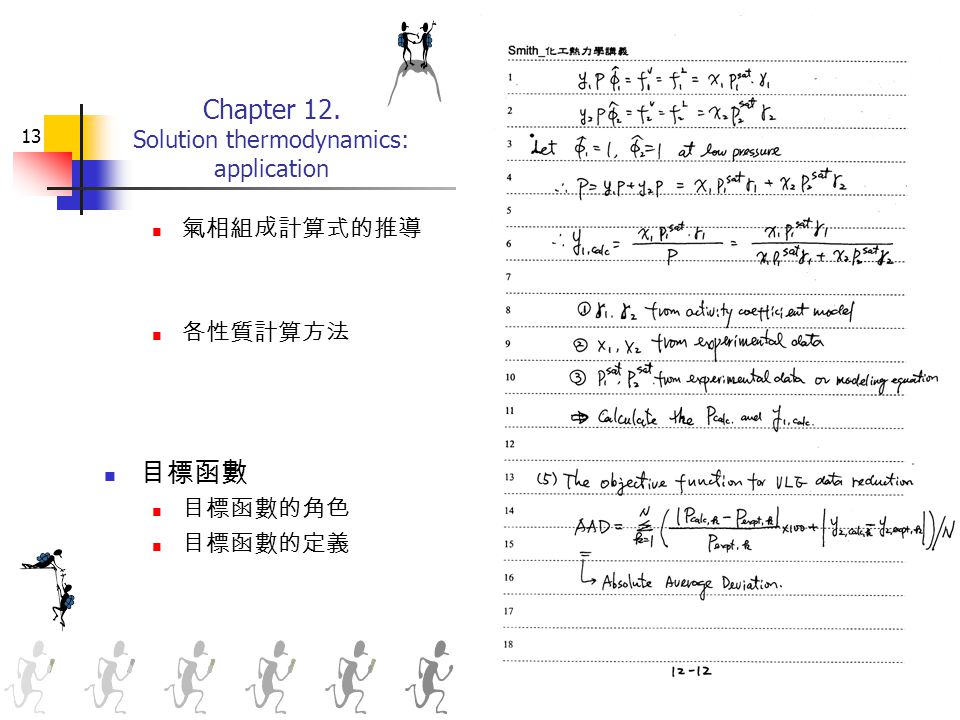 13
Chapter 12.
Solution thermodynamics:
application
氣相組成計算式的推導
各性質計算方法
目標函數
目標函數的角色
目標函數的定義
Smith_化工熱力學講義
1 y₁P φ̂₁ = f̂₁ᵛ = f̂₁ᴸ = x₁P₁ˢᵃᵗ·γ₁
2 y₂P φ̂₂ = f̂₂ᵛ = f̂₂ᴸ = x₂P₂ˢᵃᵗγ₂
3 Let φ̂₁ = 1, φ̂₂ = 1 at low pressure
4 ∴ P = y₁P + y₂P = x₁P₁ˢᵃᵗγ₁ + x₂P₂ˢᵃᵗγ₂
5
6 ∴ y₁,calc = x₁P₁ˢᵃᵗ·γ₁ / P = x₁P₁ˢᵃᵗγ₁ / x₁P₁ˢᵃᵗγ₁ + x₂P₂ˢᵃᵗγ₂
7
8 ① γ₁, γ₂ from activity coefficient model
9 ② x₁, x₂ from experimental data
10 ③ P₁ˢᵃᵗ, P₂ˢᵃᵗ from experimental data or modeling equation
11 ⇒ Calculate the Pcalc. and y₁,calc.
12
13 (5) The objective function for VLE data reduction
14 AAD = Σ (k=1, N) ( |Pcalc,k − Pexpt,k| / Pexpt,k ×100 + |y₂,calc,k − y₂,expt,k| ) / N
15
16 ↳ Absolute Average Deviation.
17
18
12-12